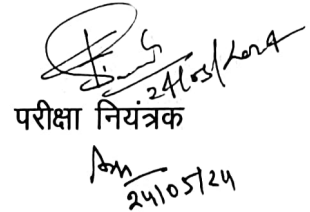 24/05/2024
परीक्षा नियंत्रक
24/05/24